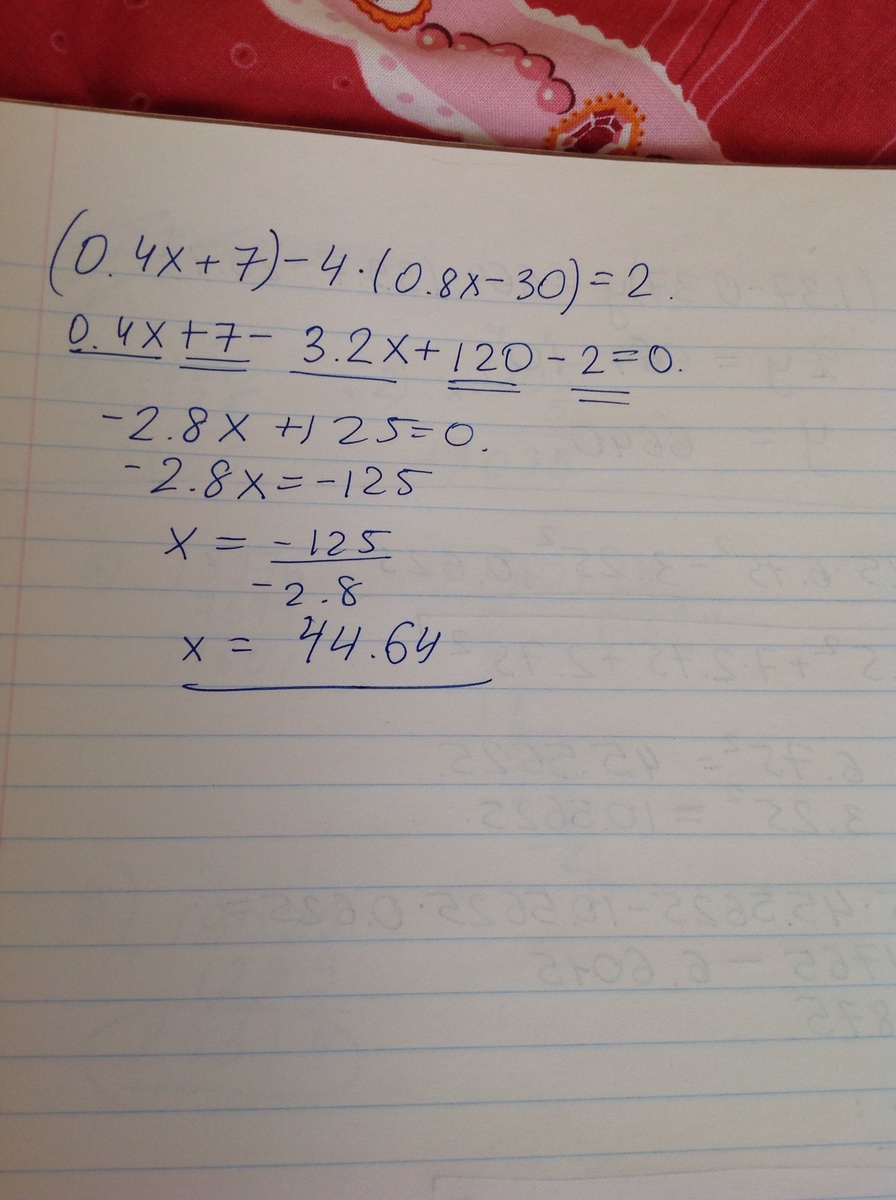 (0.4x+7)-4·(0.8x-30)=2.
0.4x+7- 3.2x+120-2=0.
-2.8x+125=0.
-2.8x=-125
x = -125
-2.8
x = 44.64